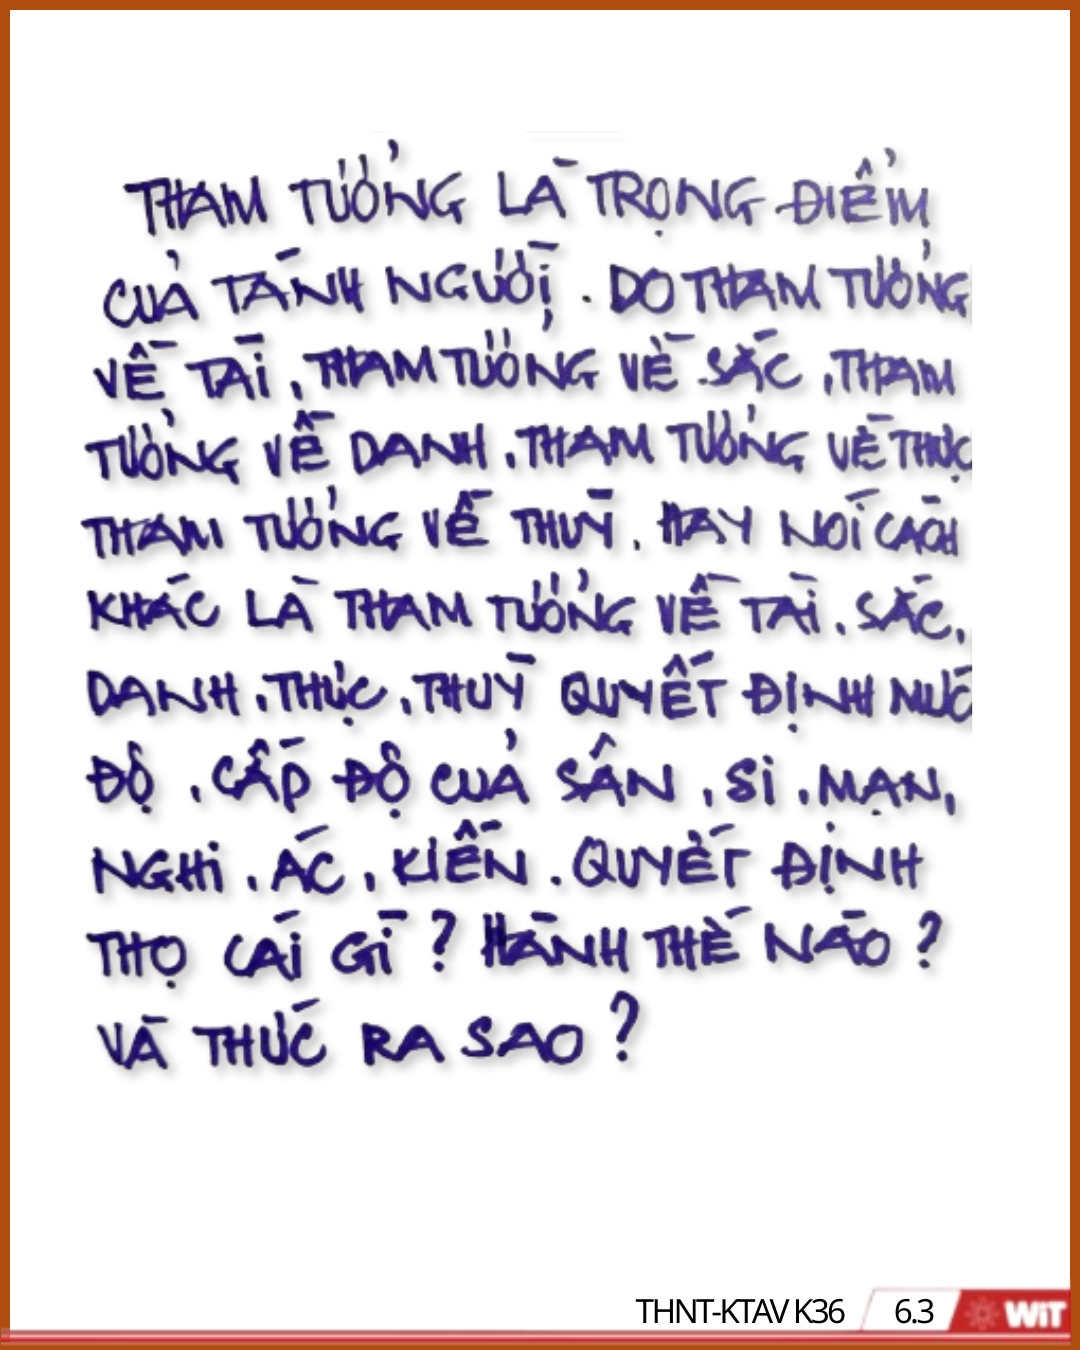 THAM TƯỞNG LÀ TRỌNG ĐIỂM
CỦA TÁNH NGƯỜI. DO THAM TƯỞNG
VỀ TÀI, THAM TƯỞNG VỀ SẮC, THAM
TƯỞNG VỀ DANH, THAM TƯỞNG VỀ THỰC
THAM TƯỞNG VỀ THUỲ. HAY NÓI CÁCH
KHÁC LÀ THAM TƯỞNG VỀ TÀI, SẮC,
DANH, THỰC, THUỲ QUYẾT ĐỊNH MỨC
ĐỘ, CẤP ĐỘ CỦA SÂN, SI, MẠN,
NGHI, ÁC, KIẾN. QUYẾT ĐỊNH
THỌ CÁI GÌ? HÀNH THẾ NÀO?
VÀ THỨC RA SAO?
THNT-KTAV K36 6.3 WiT